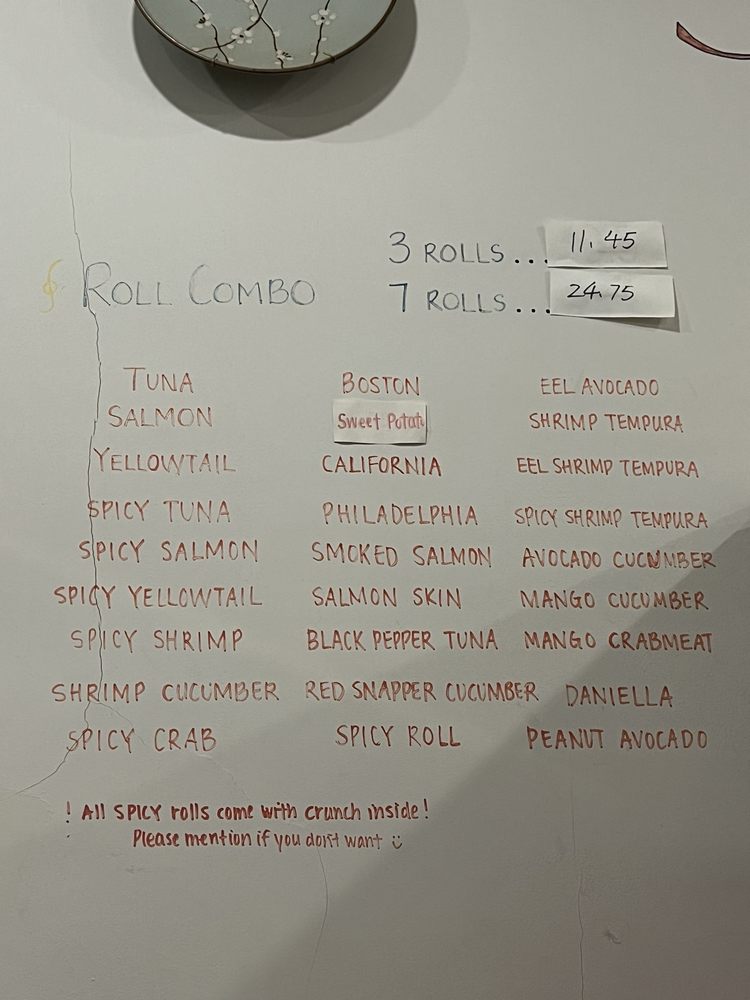 3 ROLLS... 11.45
ROLL COMBO
7 ROLLS... 24.75
TUNA BOSTON EEL AVOCADO
SALMON Sweet Potato SHRIMP TEMPURA
YELLOWTAIL CALIFORNIA EEL SHRIMP TEMPURA
SPICY TUNA PHILADELPHIA SPICY SHRIMP TEMPURA
SPICY SALMON SMOKED SALMON AVOCADO CUCUMBER
SPICY YELLOWTAIL SALMON SKIN MANGO CUCUMBER
SPICY SHRIMP BLACK PEPPER TUNA MANGO CRABMEAT
SHRIMP CUCUMBER RED SNAPPER CUCUMBER DANIELLA
SPICY CRAB SPICY ROLL PEANUT AVOCADO
! All SPICY rolls come with crunch inside!
Please mention if you don't want